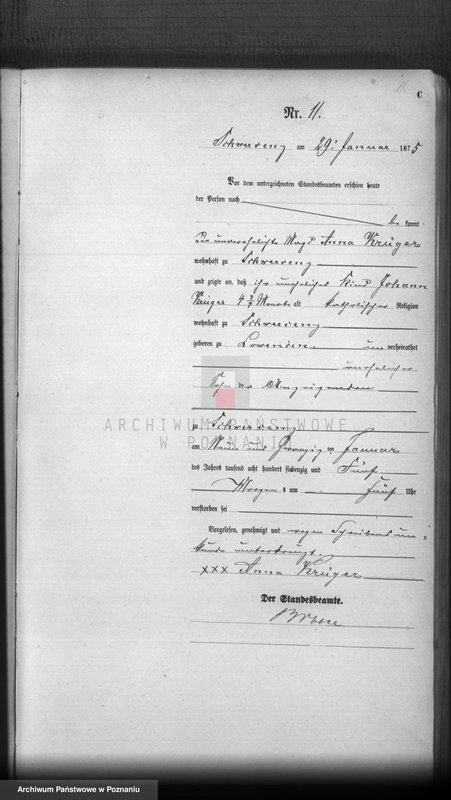 11.
C
Nr. 11.
Schwersenz am 29. Januar 1875
Vor dem unterzeichneten Standesbeamten erschien heute
der Person nach
be kannt
die unverehelichte Magd Anna Krüger
wohnhaft zu Schwersenz
und zeigte an, daß ihr uneheliches Kind Johann
Krüger 4 Monate alt katholischer Religion
wohnhaft zu Schwersenz
geboren zu un verheirathet
unehelicher
Sohn der Anzeigenden
zu Schwersenz
am Neun und Zwanzig ten Januar
des Jahres tausend acht hundert siebenzig und Fünf
Morgens um Fünf Uhr
verstorben sei
Vorgelesen, genehmigt und wegen Schreibens un-
kunde unterkreuzt.
XXX Anna Krüger
Der Standesbeamte.
ARCHIWUM PAŃSTWOWE
W POZNANIU
Archiwum Państwowe w Poznaniu